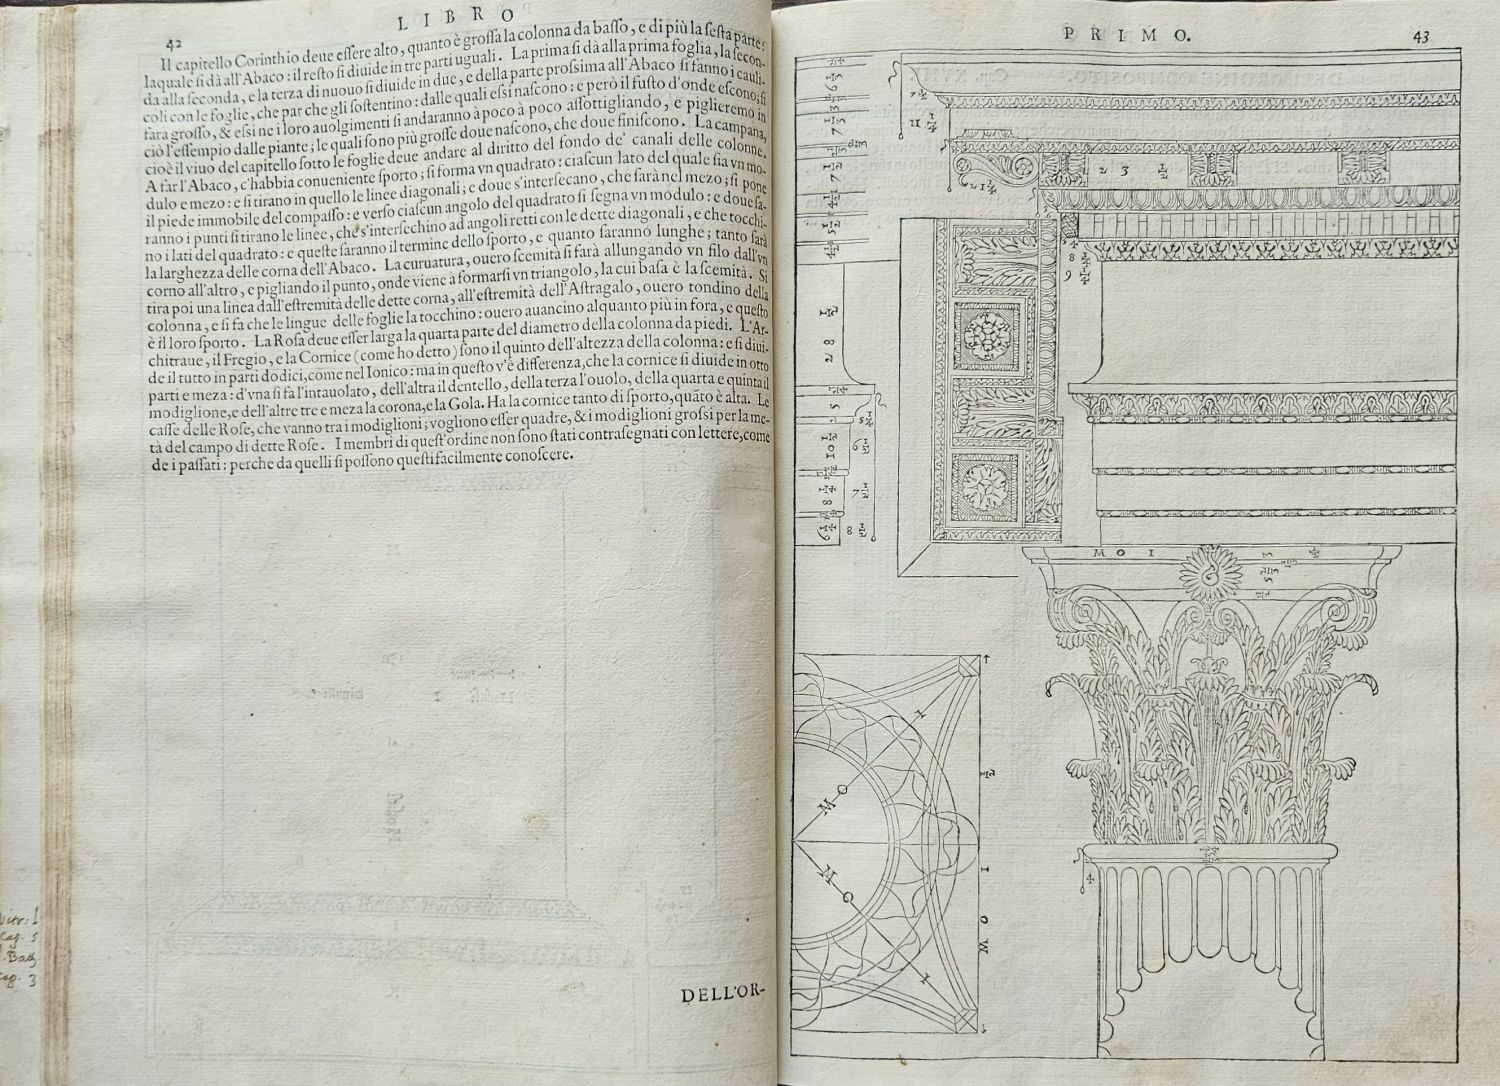 42
LIBRO
Il capitello Corinthio deue eſſere alto, quanto è groſſa la colonna da baſſo, e di più la ſeſta parte:
laquale ſi dà all'Abaco: il reſto ſi diuide in tre parti uguali. La prima ſi dà alla prima foglia, la ſecon-
da alla ſeconda, e la terza di nuouo ſi diuide in due, e della parte proſsima all'Abaco ſi fanno i cauli-
coli con le foglie, che par che gli ſoſtentino: dalle quali eſsi naſcono: e però il fuſto d'onde eſcono; ſi
farà groſſo, & eſsi ne i loro auolgimenti ſi andaranno à poco à poco aſſottigliando, e piglieremo in
ciò l'eſſempio dalle piante; le quali ſono più groſſe doue naſcono, che doue finiſcono. La campana,
cioè il viuo del capitello ſotto le foglie deue andare al diritto del fondo de' canali delle colonne.
A far l'Abaco, c'habbia conueniente ſporto; ſi forma vn quadrato: ciaſcun lato del quale ſia vn mo-
dulo e mezo: e ſi tirano in quello le linee diagonali; e doue s'interſecano, che ſarà nel mezo; ſi pone
il piede immobile del compaſſo: e verſo ciaſcun angolo del quadrato ſi ſegna vn modulo: e doue ſa-
ranno i punti ſi tirano le linee, che s'interſechino ad angoli retti con le dette diagonali, e che tocchi-
no i lati del quadrato: e queſte ſaranno il termine dello ſporto, e quanto ſaranno lunghe; tanto ſarà
la larghezza delle corna dell'Abaco. La curuatura, ouero ſcemità ſi farà allungando vn filo dall'vn
corno all'altro, e pigliando il punto, onde viene à formarſi vn triangolo, la cui baſa è la ſcemità. Si
tira poi una linea dall'eſtremità delle dette corna, all'eſtremità dell'Aſtragalo, ouero tondino della
colonna, e ſi fa che le lingue delle foglie la tocchino: ouero auancino alquanto più in fora, e queſto
è il loro ſporto. La Roſa deue eſſer larga la quarta parte del diametro della colonna da piedi. L'Ar-
chitraue, il Fregio, e la Cornice (come ho detto) ſono il quinto dell'altezza della colonna: e ſi diui-
de il tutto in parti dodici, come nel Ionico: ma in queſto v'è differenza, che la cornice ſi diuide in otto
parti e meza: d'vna ſi fa l'intauolato, dell'altra il dentello, della terza l'ouolo, della quarta e quinta il
modiglione, e dell'altre tre e meza la corona, e la Gola. Ha la cornice tanto di ſporto, quãto è alta. Le
caſſe delle Roſe, che vanno tra i modiglioni; vogliono eſſer quadre, & i modiglioni groſsi per la me-
tà del campo di dette Roſe. I membri di queſt'ordine non ſono ſtati contraſegnati con lettere, come
de i paſſati: perche da quelli ſi poſſono queſti facilmente conoſcere.
DELL'OR-
PRIMO.
43
2 3 1/2
MO I
MO
MO
I
I
MO I